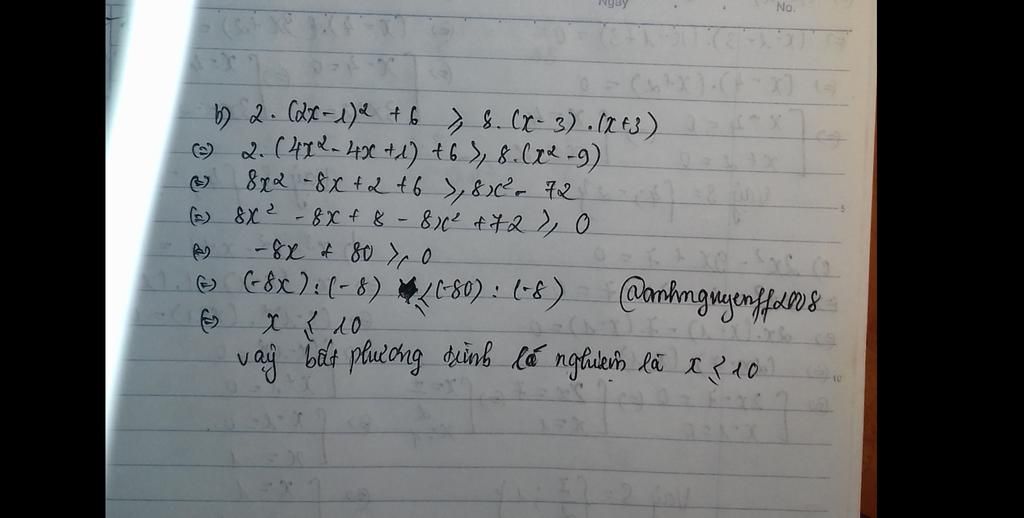 Ngày
No.
b) 2 . (2x - 1)² + 6 ⩾ 8 . (x - 3) . (x + 3)
(=) 2 . (4x² - 4x + 1) + 6 ⩾ 8 . (x² - 9)
(=) 8x² - 8x + 2 + 6 ⩾ 8x² - 72
(=) 8x² - 8x + 8 - 8x² + 72 ⩾ 0
(=) -8x + 80 ⩾ 0
(=) (-8x) : (-8) ⩽ (-80) : (-8) @anhnguyenff2008
(=) x ⩽ 10
vậy bất phương trình có nghiệm là x ⩽ 10